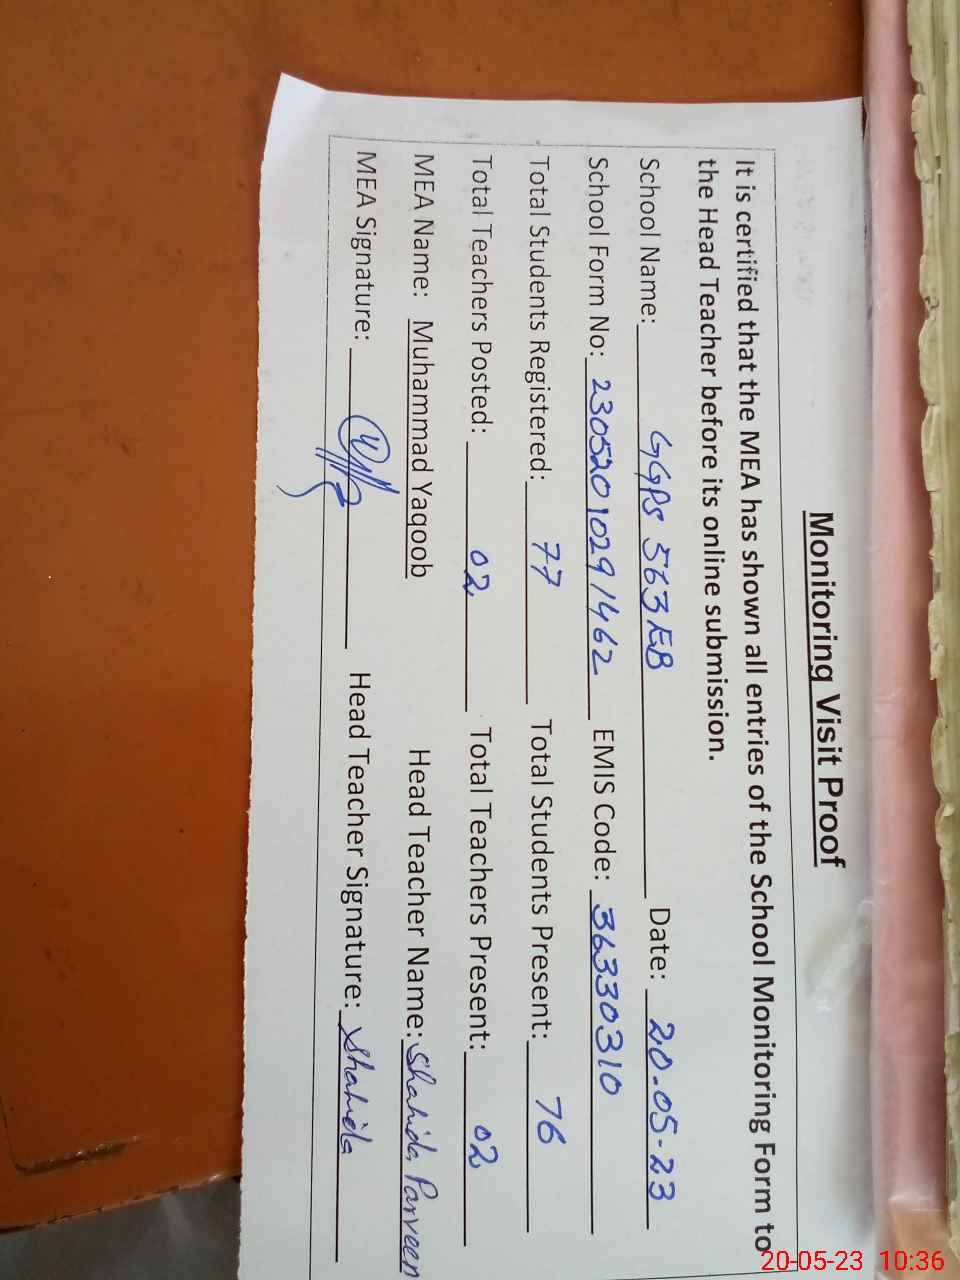 Monitoring Visit Proof
It is certified that the MEA has shown all entries of the School Monitoring Form to
the Head Teacher before its online submission.
School Name: GGPS 563 EB Date: 20-05-23
School Form No: 23052010291462 EMIS Code: 36330310
Total Students Registered: 77 Total Students Present: 76
Total Teachers Posted: 02 Total Teachers Present: 02
MEA Name: Muhammad Yaqoob Head Teacher Name: Shahida Parveen
MEA Signature: Head Teacher Signature: Shahida
20-05-23 10:36